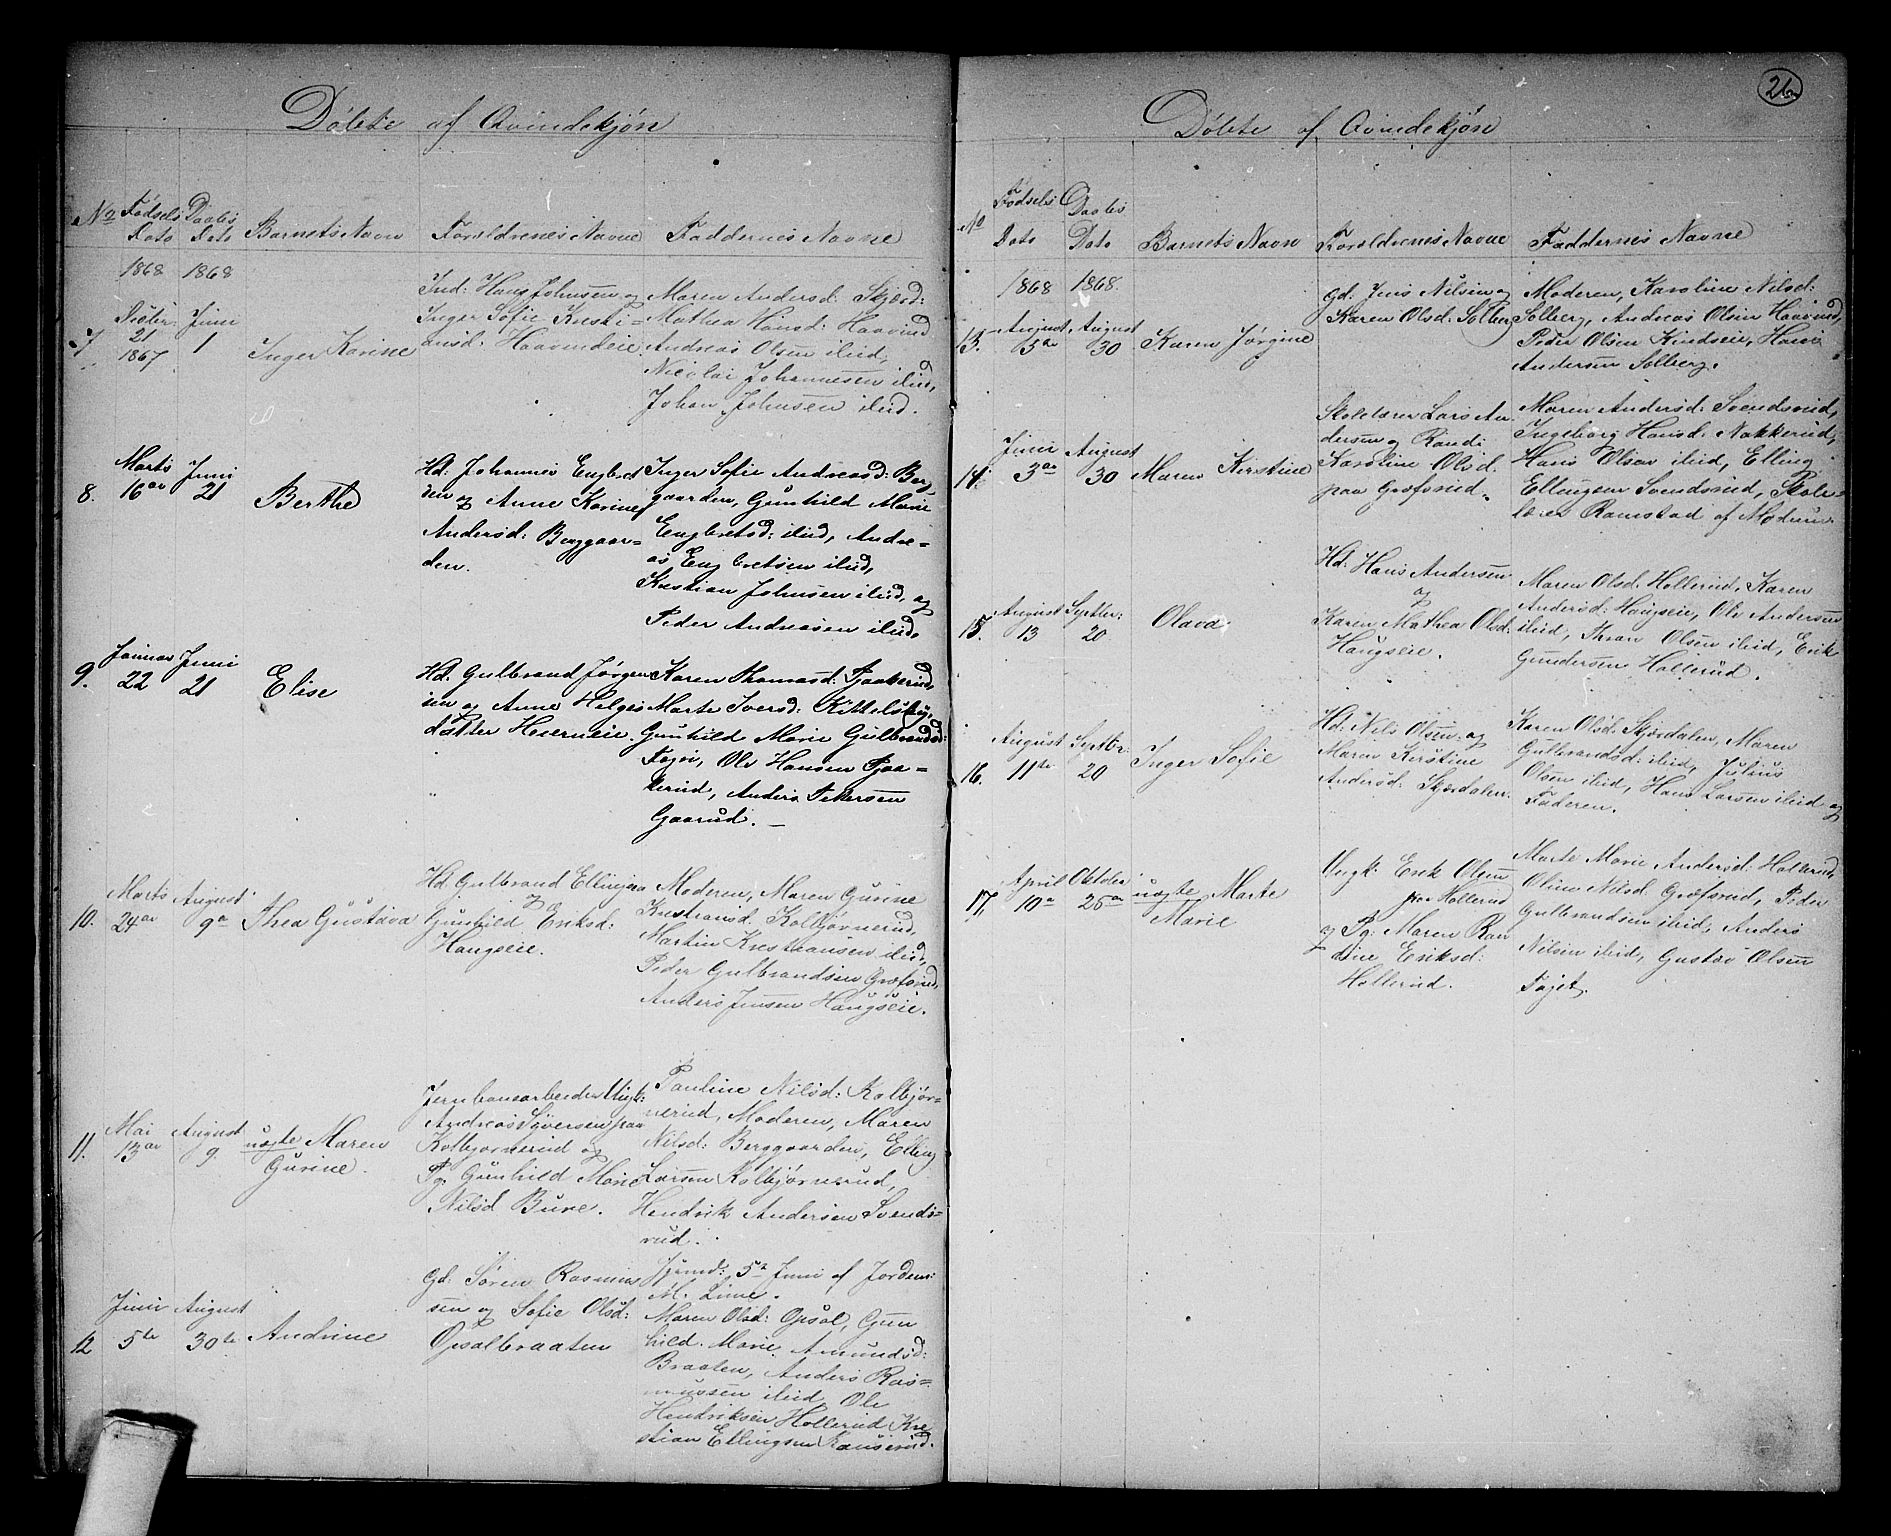 Döbte af Qvindekjön
No Födsels Dato Daabs Dato Barnets Navn Forældrenes Navne Faddernes Navne
1868 1868
7. 21 1867 Juni 1 Inger Karine
Ind: Hans Johnsen og
Inger Sofie Kristi-
ansd: Haavindeie
Maren Andersd: Skjærd:
Mathea Hansd: Haavind
Andreas Olsen ibid,
Nicolai Johannesen ibid,
Johan Johnsen ibid.
8. Marts 16de Juni 21 Berthe
Hd: Johannes Engebret
og Anne Karine
Andersd: Berggaar=
den.
Inger Sofie Andreasd: Berg
gaarden, Gunhild Marie
Engebretsd: ibid, Andre=
as Engebretsen ibid,
Kristian Johnsen ibid, og
Peder Andreasen ibid.
9. Januar 22 Juni 21 Elise
Hd: Gulbrand Jörgen
sen og Anne Helges
datter Heierneie.
Karen Thomasd: Tjaakerud,
Marte Iversd: Kittelsby,
Gunhild Marie Gulbrandsd:
Ole Hansen Tjaa=
kerud, Anders Pettersen
Gaarud. —
10. Marts 24de August 9de Thea Gustava
Hd. Gulbrand Ellingsen
og
Gunhild Eriksd:
Haugseie.
Moderen, Maren Gurine
Kristiansd. Kolbjörnerud,
Martin Kristiansen ibid,
Peder Gulbrandsen Græfsrud,
Anders Jensen Haugseie.
11. Mai 13de August 9. uægte Maren
Gurine.
Jernbanearbeider Ungk:
Andreas Syversen paa
Kolbjörnerud og
Pg. Gunhild Marie
Nilsd Bure.
Pauline Nilsd: Kolbjör=
nerud, Moderen, Maren
Nilsd: Berggaarden, Elling
Larsen Kolbjörnerud,
Hendrik Andersen Svends=
rud.
12 Juni 5te August 30te Andrine
Gd: Sören Rasmus
sen og Sofie Olsd:
Opsalbraaten
Hjemd: 5te Juni af Jordem:
M. Lime.
Maren Olsd: Opsal, Gun
hild Marie Amundsd:
Braaten, Anders Ras=
mussen ibid Ole
Hendriksen Hollerud Kri
stian Ellingsen
26
Döbte af Qvindekjön
No Födsels Dato Daabs Dato Barnets Navn Forældrenes Navne Faddernes Navne
1868 1868.
13. August 5de August 30 Karen Jörgine
Gd: Jens Nilsen og
Karen Olsd: Solberg
Moderen, Karoline Nilsd:
Solberg, Andreas Olsen Haavind,
Peder Olsen Kindseie, Hans
Andersen Solberg.
14. Juni 3de August 30 Maren Kirstine
Skolelærer Lars An
dersen og Randi
Karoline Olsd.
paa Græfsrud.
Maren Andersd: Svendsrud,
Ingeborg Hansd: Nakkerud,
Hans Olsen ibid, Elling
Ellingsen Svendsrud, Skole=
lærer Ramstad af Modum
15. August 13 Septbr: 20 Olava.
Hd: Hans Andersen
og
Karen Mathea Olsd:
Haugseie.
Maren Olsd. Hollerud, Karen
Andersd: Haugseie, Ole Andersen
ibid, Thran Olsen ibid, Erik
Gundersen Hollerud.
16. August 11te Septbr: 20 Inger Sofie
Hd: Nils Olsen og
Maren Kirstine
Andersd: Skjærdalen.
Karen Olsd: Skjærdalen, Maren
Gulbrandsd: ibid, Julius
Olsen ibid, Hans Larsen ibid og
Faderen.
17. April 10de Oktober 25de uægte Marte
Marie
Ungk: Erik Olsen
paa Hollerud
og Pg: Maren Ran
dine Eriksd:
Hollerud.
Marte Marie Andersd: Hollerud,
Oline Nilsd: Græfsrud, Peder
Gulbrandsen ibid, Anders
Nilsen ibid, Gustav Olsen
Töjet.